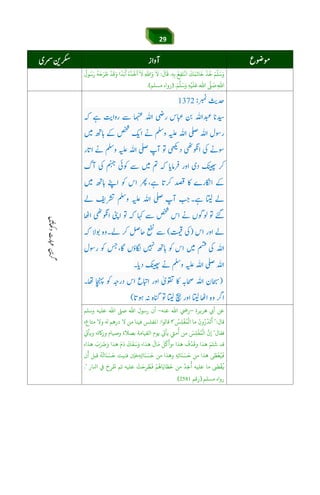 29
موضوع
آواز
سکرین سمری
وَسَلَّمَ خُذْ خَاتَمَكَ انْتَفِعْ بِهِ قَالَ: لَا وَاللَّهِ لَا آخُذُهُ أَبَدًا وَقَدْ طَرَحَهُ رَسُولُ
اللَّهِ صَلَّى اللَّهُ عَلَيْهِ وَسَلَّمَ. (رواه مسلم).
حدیث نمبر: 1372
سیدنا عبداللہ بن عباس رضی اللہ عنہما سے روایت ہے کہ
رسول اللہ صلی اللہ علیہ وسلم نے ایک شخص کے ہاتھ میں
سونے کی انگوٹھی دیکھی تو آپ صلی اللہ علیہ وسلم نے اتار
کر پھینک دی اور فرمایا کہ تم میں سے کوئی جہنم کی آگ
کے انگارے کا قصد کرتا ہے، پھر اس کو اپنے ہاتھ میں
لے لیتا ہے۔ جب آپ صلی اللہ علیہ وسلم تشریف لے
گئے تو لوگوں نے اس شخص سے کہا کہ تو اپنی انگوٹھی اٹھا
لے اور اس (کی قیمت) سے نفع حاصل کر لے۔ وہ بولا کہ
اللہ کی قسم میں اس کو ہاتھ نہیں لگاؤں گا، جس کو رسول
اللہ صلی اللہ علیہ وسلم نے پھینک دیا۔
(سبحان اللہ صحابہ کا تقویٰ اور اتباع اس درجہ کو پہنچا تھا۔
اگر وہ اٹھا لیتا اور بیچ لیتا تو گناہ نہ ہوتا)
عن أبي هريرة -رضي الله عنه- أن رسول الله صلى الله عليه وسلم
قال: "أَتَدْرُونَ ما الْمُفْلِسُ؟ قالوا: المفلس فينا من لا درهم له ولا متاع،
فقال: "إِنَّ الْمُفْلِسَ مِن أُمَّتي يأتي يوم القيامة بصلاة وصيام وزكاة، ويأتي
قد شتم هذا وقذف هذا، وأكل مال هذا، وسفك دم هذا، وضرب هذا،
فيعطى هذا من حسناته وهذا من حسناته، فإن فنيت حسناته قبل أن
يُقْضَى ما عليه أُخِذَ من خطاياهم فطرحت عليه ثم طرح في النار".
رواه مسلم (رقم 2581)